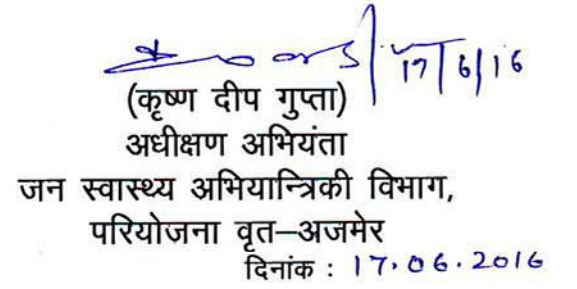 17/6/16
(कृष्ण दीप गुप्ता)
अधीक्षण अभियंता
जन स्वास्थ्य अभियान्त्रिकी विभाग,
परियोजना वृत–अजमेर
दिनांक : 17.06.2016